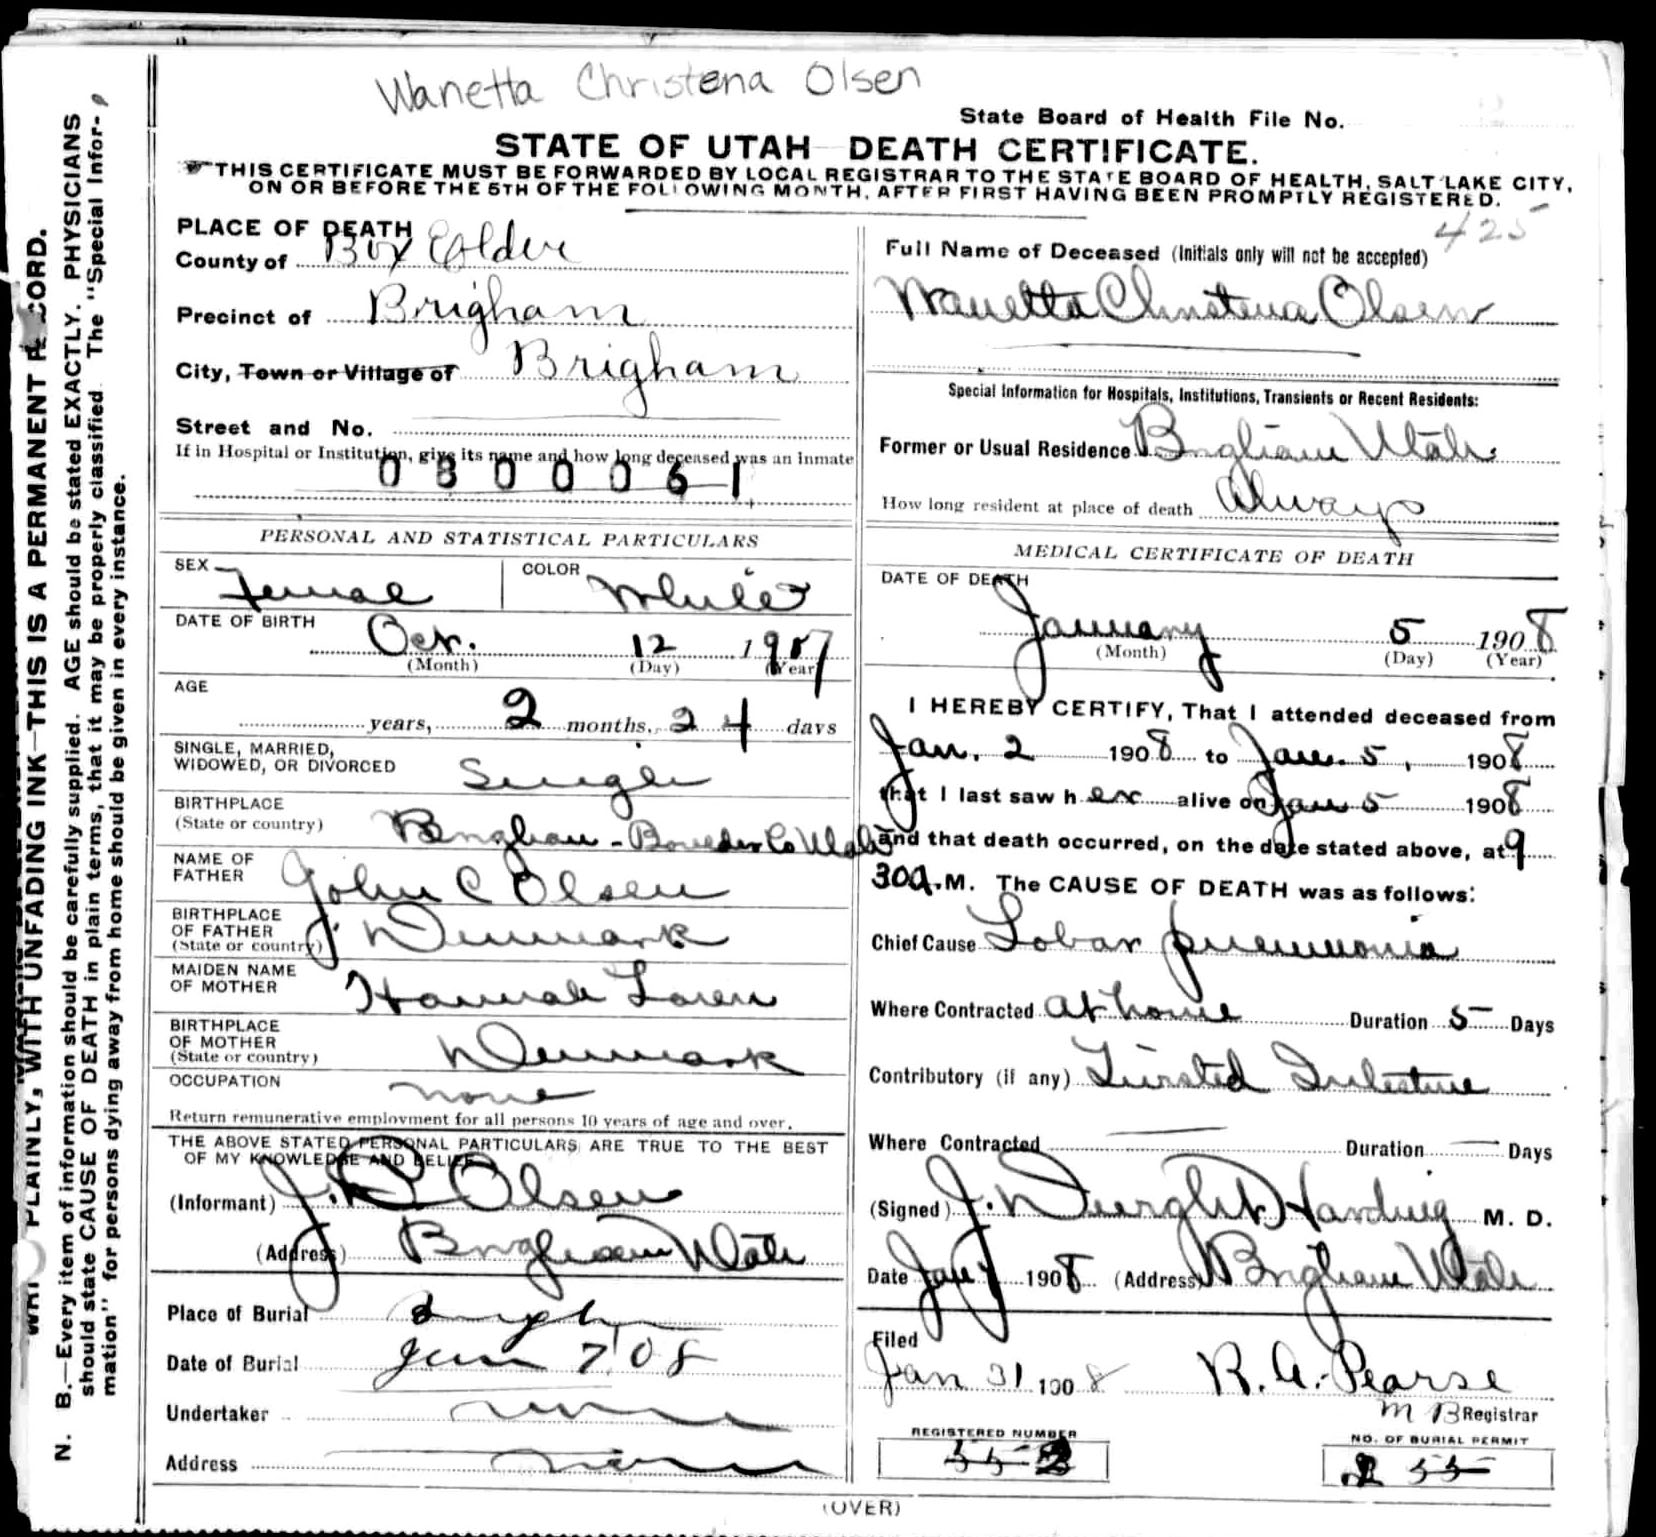 Wanetta Christena Olsen
State Board of Health File No.
STATE OF UTAH DEATH CERTIFICATE.
THIS CERTIFICATE MUST BE FORWARDED BY LOCAL REGISTRAR TO THE STATE BOARD OF HEALTH, SALT LAKE CITY,
ON OR BEFORE THE 5TH OF THE FOLLOWING MONTH, AFTER FIRST HAVING BEEN PROMPTLY REGISTERED.
425
PLACE OF DEATH
County of Box Elder
Precinct of Brigham
City, Town or Village of Brigham
Street and No.
If in Hospital or Institution, give its name and how long deceased was an inmate
0 3 0 0 0 6 1
PERSONAL AND STATISTICAL PARTICULARS
SEX Female COLOR White
DATE OF BIRTH Oct. 12 1907
(Month) (Day) (Year)
AGE
years, 2 months, 24 days
SINGLE, MARRIED,
WIDOWED, OR DIVORCED Single
BIRTHPLACE
(State or country) Brigham - Boxelder Co Utah
NAME OF
FATHER John C Olsen
BIRTHPLACE
OF FATHER
(State or country) Denmark
MAIDEN NAME
OF MOTHER Hannah
BIRTHPLACE
OF MOTHER
(State or country) Denmark
OCCUPATION none
Return remunerative employment for all persons 10 years of age and over.
THE ABOVE STATED PERSONAL PARTICULARS ARE TRUE TO THE BEST
OF MY KNOWLEDGE AND BELIEF
(Informant) J. C Olsen
(Address) Brigham Utah
Place of Burial Brigham
Date of Burial Jan 7 '08
Undertaker none
Address none
Full Name of Deceased (Initials only will not be accepted)
Wanetta Christena Olsen
Special Information for Hospitals, Institutions, Transients or Recent Residents:
Former or Usual Residence Brigham Utah
How long resident at place of death Always
MEDICAL CERTIFICATE OF DEATH
DATE OF DEATH
January 5 1908
(Month) (Day) (Year)
I HEREBY CERTIFY, That I attended deceased from
Jan. 2 1908 to Jan. 5, 1908
that I last saw her alive on Jan 5 1908
and that death occurred, on the date stated above, at 9
30a.M. The CAUSE OF DEATH was as follows:
Chief Cause Lobar pneumonia
Where Contracted at home Duration 5 Days
Contributory (if any) Twisted Intestine
Where Contracted Duration Days
(Signed) J. Dwight Harding M. D.
Date Jan 7 1908 (Address) Brigham Utah
Filed
Jan 31 1908 R. A. Pearse
M B Registrar
REGISTERED NUMBER
NO. OF BURIAL PERMIT
(OVER)
WRITE PLAINLY, WITH UNFADING INK—THIS IS A PERMANENT RECORD.
N. B.—Every item of information should be carefully supplied. AGE should be stated EXACTLY. PHYSICIANS
should state CAUSE OF DEATH in plain terms, that it may be properly classified. The "Special Infor-
mation" for persons dying away from home should be given in every instance.